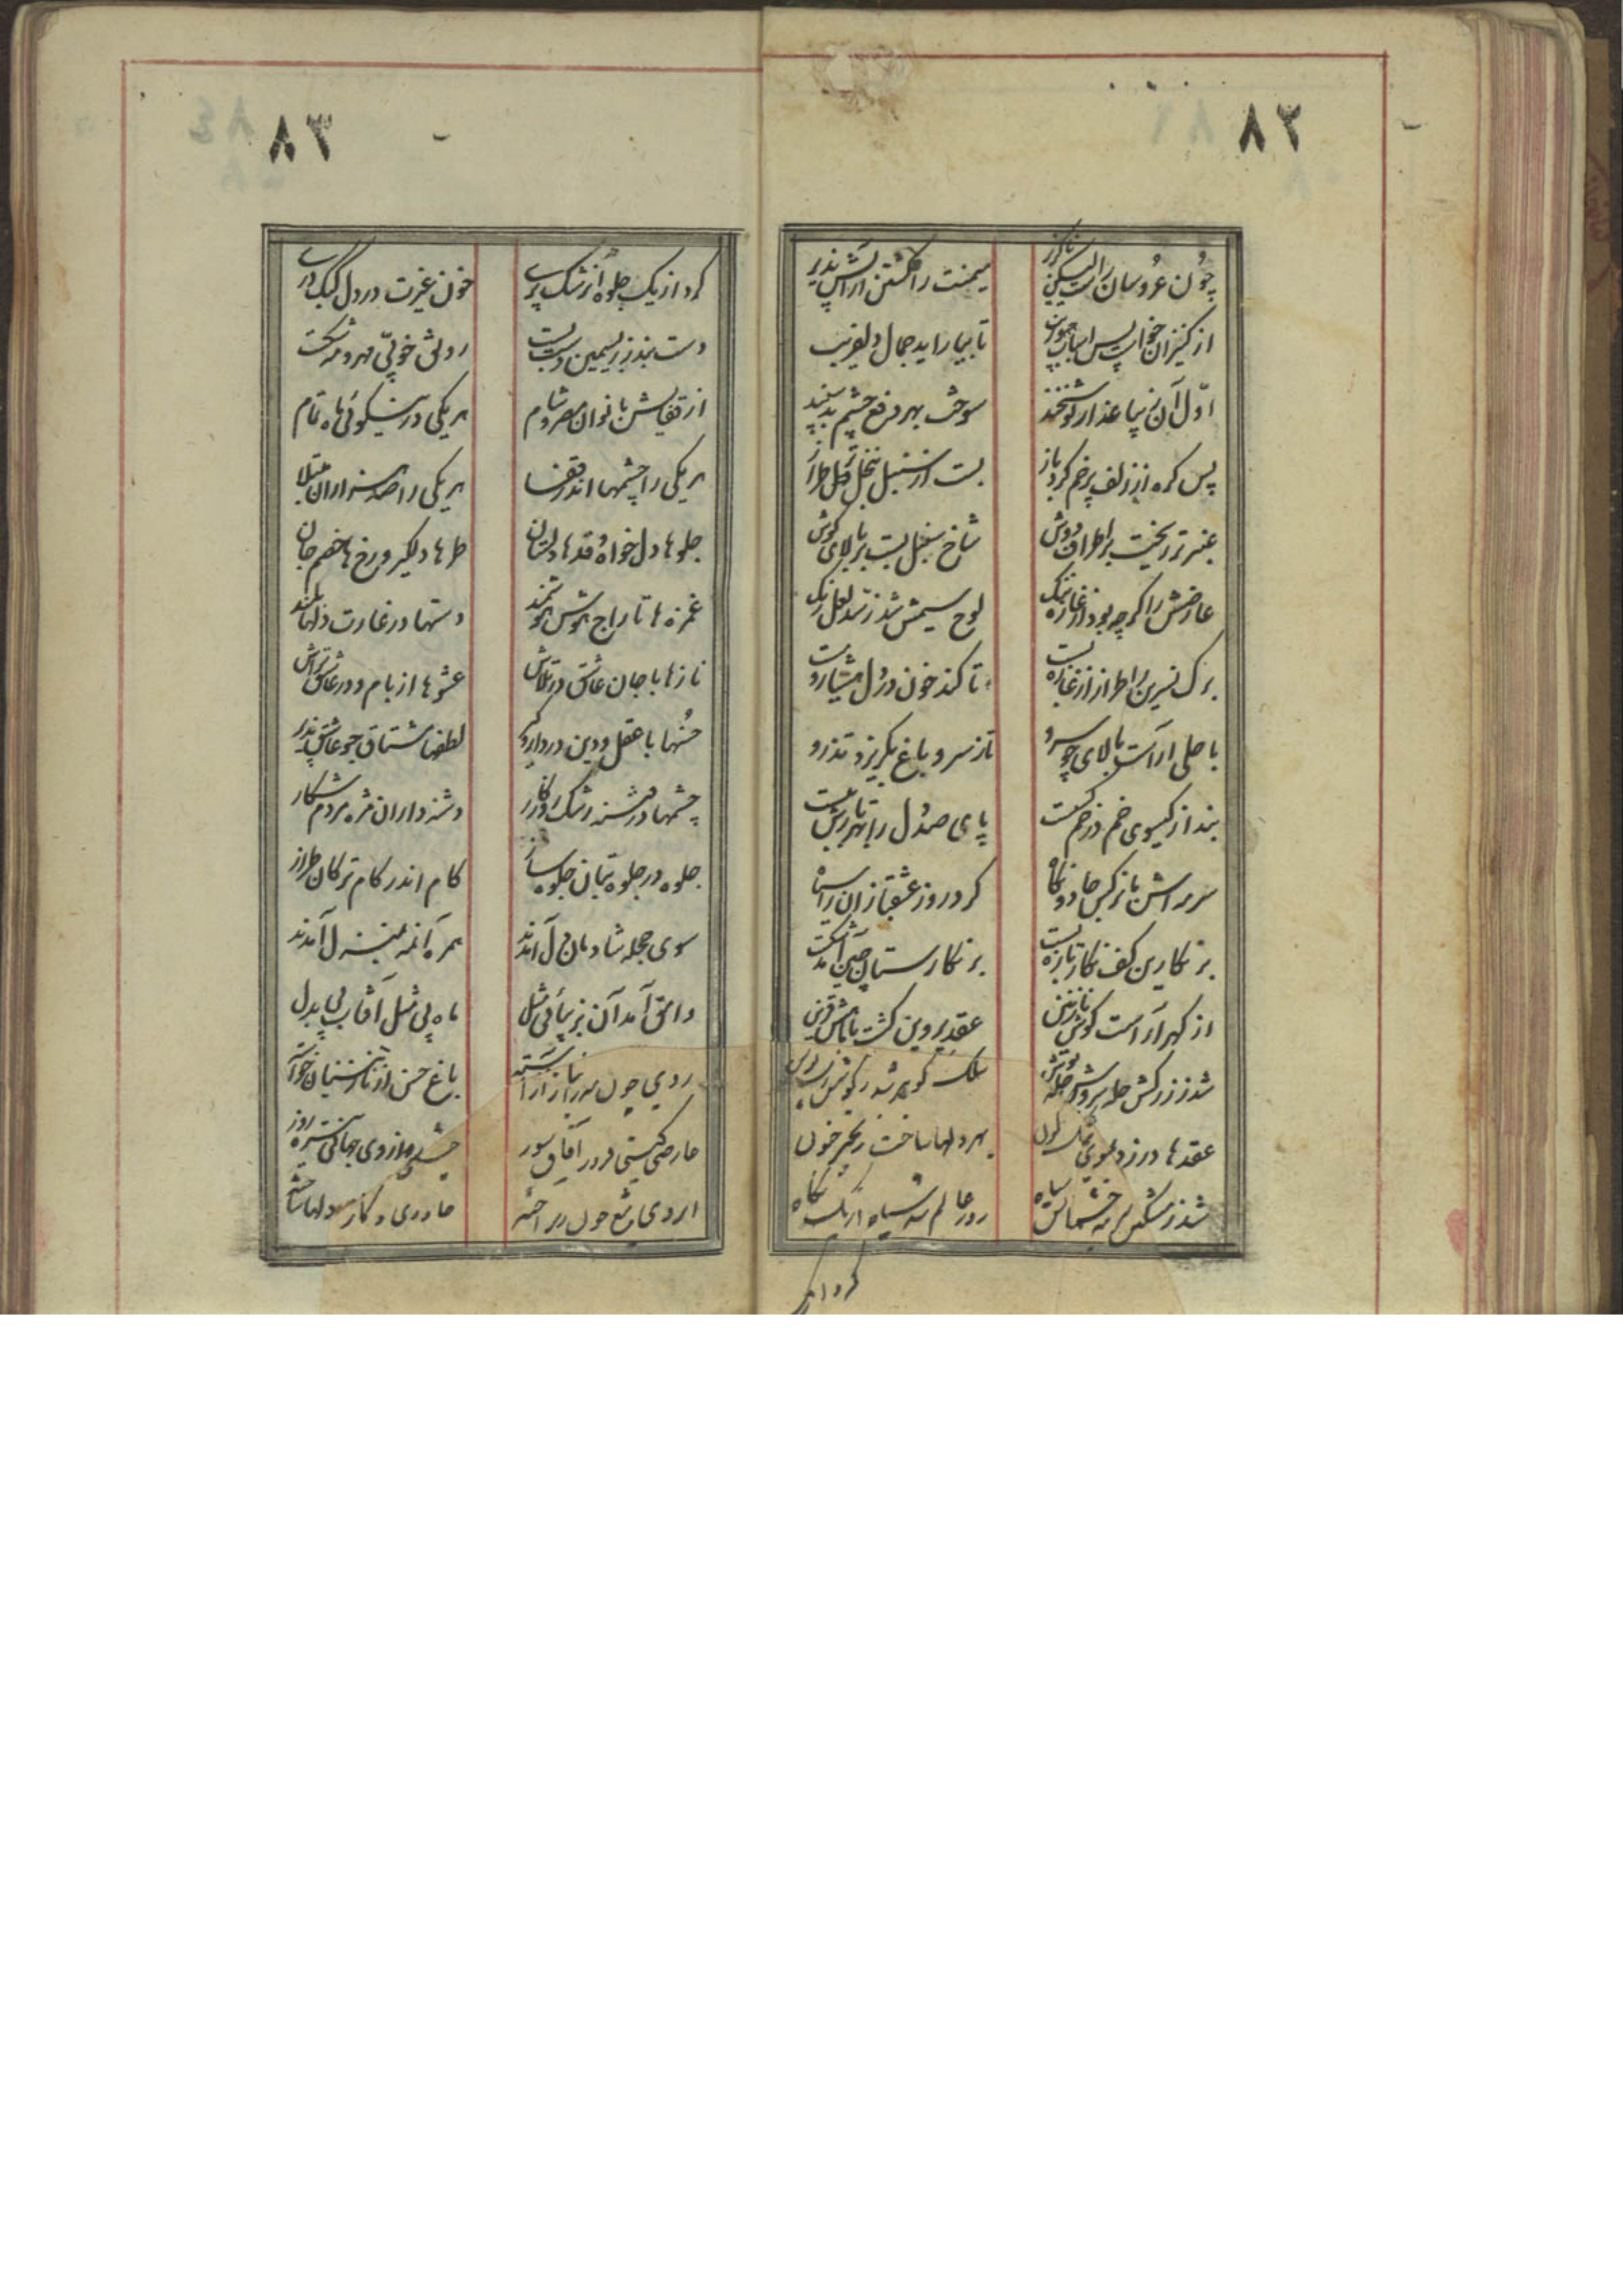 ۸۲
چون عروسان را لیکن ناگزیر
میمنت را گشتن آرایش پذیر
از کنیزان خواست پس اسباب
تا بیاراید جمال دلفریب
اول آن زیبا عذار نوشخند
سوخت بهر دفع چشم بد سپند
پس گره از زلف پرخم کرد باز
بست از سنبل نخل گل طراز
عنبر تر ریخت بر اطراف دوش
شاخ سنبل بست بر بالای گوش
عارضش را گرچه بود از غازه ننگ
لوح سیمش شد ز لعل رنگ
برگ نسرین را طراز از غازه بست
تا کند خون در دل مشتا
با حلی آراست بالای چو سرو
تا ز سرو باغ بگریزد تذرو
بند از گیسوی خم در خم گسست
پای صد دل را بهر تارش ببست
سرمه اش با نرگس جادو نگاه
کرد روز عشقبازان را سیاه
بر نگارین کف نگار تازه بست
بر نگارستان چین آمد شکست
از گهر آراست گوش نازنین
عقد پروین گشت با ماهش قرین
شد ز زرکش حله سرو
سلک گوهر شد ز گوشش
عقدها در زد بموی
بهر دلها ساخت زنجیر خون
شد ز مشکین سرمه چشمانش سیاه
روز عالم شد سیاه از یک نگاه
کرد از یک
۸۳
کرد از یک جلوه آن رشک پری
خون غیرت در دل کبک دری
دست بند زر بسیمین دست بست
رونق خوبی مهر و مه شکست
از قفایش بانوان مصر و شام
هر یکی در نیکوئی ماه تمام
هر یکی را چشمها اندر قفا
هر یکی را صد هزاران مبتلا
جلوها دل خواه و قدها دلستان
طرها دلگیر و رخ ها خصم جان
غمزه ها تاراج هوش هوشمند
دستها در غارت دلها بلند
نازها با جان عاشق در تلاش
عشوها از بام و در عاشق تراش
حسنها با عقل و دین در دار و گیر
لطفها مشتاق جو عاشق پذیر
چشمها در فتنه رشک روزگار
دشنه داران مژه مردم شکار
جلوه در جلوه بتان جلوه ساز
کام اندر کام ترکان طراز
سوی حجله شادمان دل آمدند
همره آنمه بمنزل آمدند
وامق آمد آن بزیبائی مثل
ماه بی مثل آفتاب بی بدل
روی چون مه را ز ناز آراسته
باغ حسن از نازنینان خواسته
عارضی گیتی فروز آفاق سوز
از روی جهانی تیره روز
ابروی شمع چون بر